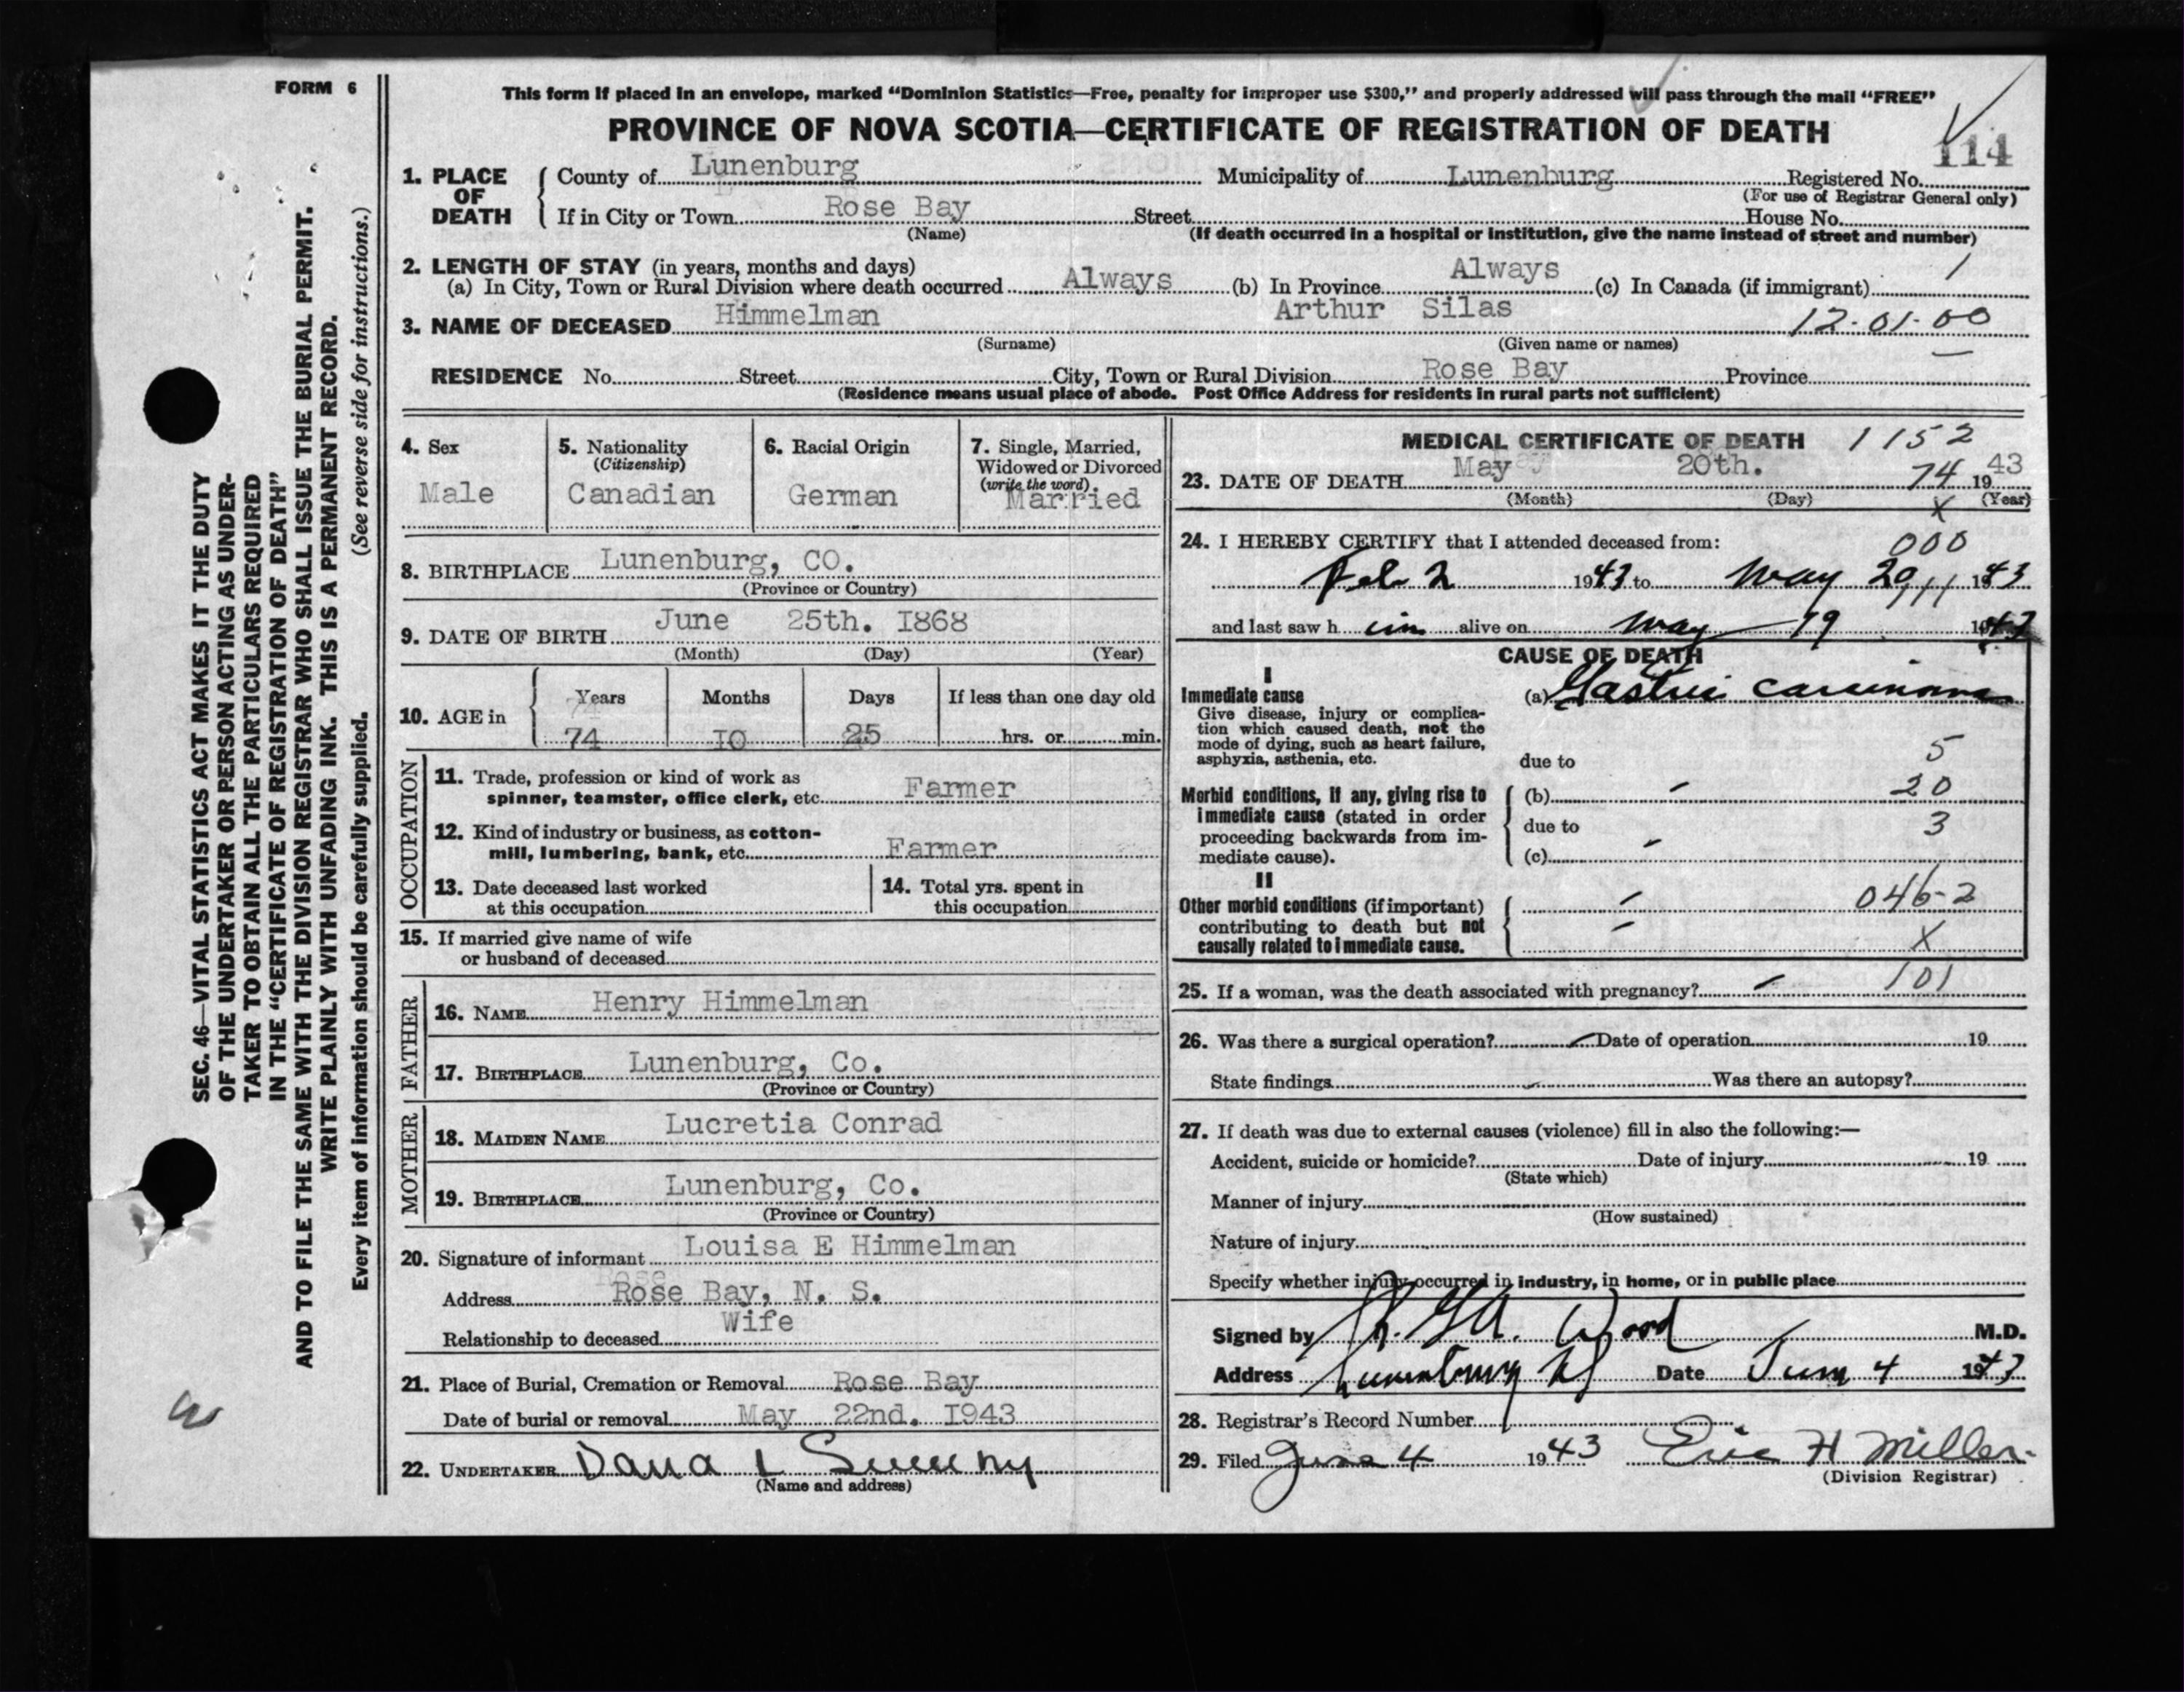 FORM 6
This form if placed in an envelope, marked “Dominion Statistics—Free, penalty for improper use $300,” and properly addressed will pass through the mail “FREE”
PROVINCE OF NOVA SCOTIA—CERTIFICATE OF REGISTRATION OF DEATH
114
1. PLACE OF DEATH
County of Lunenburg Municipality of Lunenburg Registered No.
(For use of Registrar General only)
If in City or Town Rose Bay Street House No.
(Name) (If death occurred in a hospital or institution, give the name instead of street and number)
2. LENGTH OF STAY (in years, months and days)
(a) In City, Town or Rural Division where death occurred Always (b) In Province Always (c) In Canada (if immigrant) 1
3. NAME OF DECEASED Himmelman Arthur Silas 12-01-00
(Surname) (Given name or names)
RESIDENCE No. Street City, Town or Rural Division Rose Bay Province
(Residence means usual place of abode. Post Office Address for residents in rural parts not sufficient)
4. Sex
Male
5. Nationality
(Citizenship)
Canadian
6. Racial Origin
German
7. Single, Married,
Widowed or Divorced
(write the word)
Married
8. BIRTHPLACE Lunenburg, CO.
(Province or Country)
9. DATE OF BIRTH June 25th. I868
(Month) (Day) (Year)
10. AGE in
Years Months Days If less than one day old
74 IO 25 hrs. or min.
OCCUPATION
11. Trade, profession or kind of work as
spinner, teamster, office clerk, etc. Farmer
12. Kind of industry or business, as cotton-
mill, lumbering, bank, etc. Farmer
13. Date deceased last worked
at this occupation
14. Total yrs. spent in
this occupation
15. If married give name of wife
or husband of deceased
FATHER
16. NAME Henry Himmelman
17. BIRTHPLACE Lunenburg, Co.
(Province or Country)
MOTHER
18. MAIDEN NAME Lucretia Conrad
19. BIRTHPLACE Lunenburg, Co.
(Province or Country)
20. Signature of informant Louisa E Himmelman
Address Rose Bay, N. S.
Relationship to deceased Wife
21. Place of Burial, Cremation or Removal Rose Bay
Date of burial or removal May 22nd. I943
22. UNDERTAKER Dana L Sweeny
(Name and address)
MEDICAL CERTIFICATE OF DEATH 1152
23. DATE OF DEATH May 20th. 74 1943
(Month) (Day) (Year)
X
24. I HEREBY CERTIFY that I attended deceased from:
000
Feb 2 1943 to May 20 1943
and last saw him alive on May 19 1943
CAUSE OF DEATH
I
Immediate cause
(a) Gastric carcinoma
Give disease, injury or complica-
tion which caused death, not the
mode of dying, such as heart failure,
asphyxia, asthenia, etc.
due to 5
Morbid conditions, if any, giving rise to
immediate cause (stated in order
proceeding backwards from im-
mediate cause).
(b) 20
due to 3
(c)
II
Other morbid conditions (if important)
contributing to death but not
causally related to immediate cause.
046-2
X
25. If a woman, was the death associated with pregnancy? 101
26. Was there a surgical operation? Date of operation 19
State findings Was there an autopsy?
27. If death was due to external causes (violence) fill in also the following:—
Accident, suicide or homicide? Date of injury 19
(State which)
Manner of injury
(How sustained)
Nature of injury
Specify whether injury occurred in industry, in home, or in public place
Signed by Wood M.D.
Address Lunenburg NS Date June 4 1943
28. Registrar’s Record Number
29. Filed June 4 1943 Eric H Miller
(Division Registrar)
SEC. 46—VITAL STATISTICS ACT MAKES IT THE DUTY
OF THE UNDERTAKER OR PERSON ACTING AS UNDER-
TAKER TO OBTAIN ALL THE PARTICULARS REQUIRED
IN THE “CERTIFICATE OF REGISTRATION OF DEATH”
AND TO FILE THE SAME WITH THE DIVISION REGISTRAR WHO SHALL ISSUE THE BURIAL PERMIT.
WRITE PLAINLY WITH UNFADING INK. THIS IS A PERMANENT RECORD.
Every item of information should be carefully supplied. (See reverse side for instructions.)